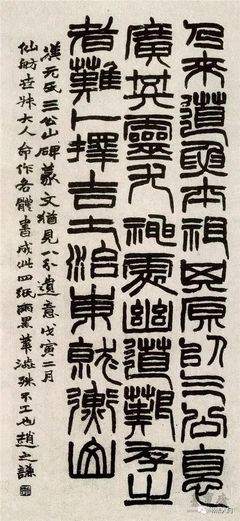 乃來道要本祖其原以三公悳
廣其靈尤神處幽道艱存之
者難卜擇吉土治東就衡山
漢元氏三公山碑篆文猶見八分遺意戊寅二月
仙舫世叔大人命作各體書成此四紙筆澁殊不工也趙之謙